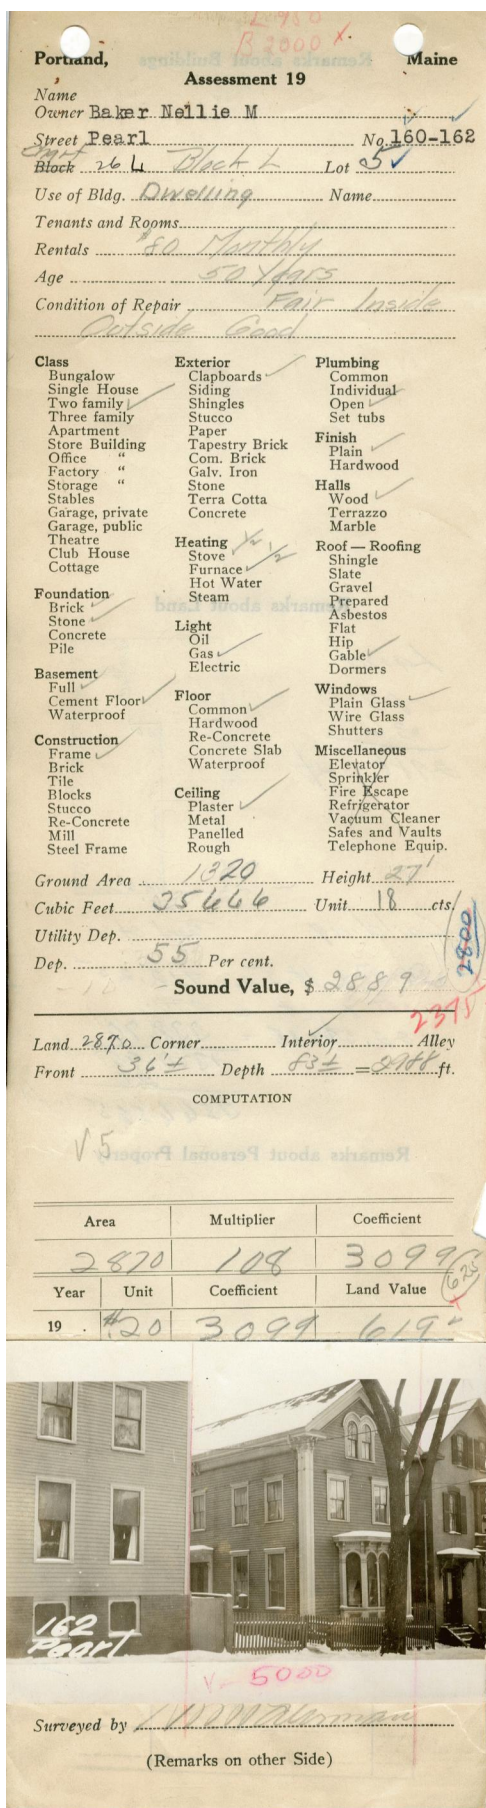 L 950
B 2000 x.
Portland, Maine
Assessment 19
Name
Owner Baker Nellie M
Street Pearl No. 160-162
Block 26 L Block L Lot 5
Use of Bldg. Dwelling Name
Tenants and Rooms
Rentals $80 Monthly
Age 50 Years
Condition of Repair Fair Inside
Outside Good
Class
Bungalow
Single House
Two family ✓
Three family
Apartment
Store Building
Office "
Factory "
Storage "
Stables
Garage, private
Garage, public
Theatre
Club House
Cottage
Foundation
Brick ✓
Stone ✓
Concrete
Pile
Basement
Full ✓
Cement Floor ✓
Waterproof
Construction
Frame ✓
Brick
Tile
Blocks
Stucco
Re-Concrete
Mill
Steel Frame
Exterior
Clapboards ✓
Siding
Shingles
Stucco
Paper
Tapestry Brick
Com. Brick
Galv. Iron
Stone
Terra Cotta
Concrete
Heating
Stove ✓ 1/2
Furnace ✓ 1/2
Hot Water
Steam
Light
Oil
Gas ✓
Electric
Floor
Common ✓
Hardwood
Re-Concrete
Concrete Slab
Waterproof
Ceiling
Plaster ✓
Metal
Panelled
Rough
Plumbing
Common
Individual
Open ✓
Set tubs
Finish
Plain ✓
Hardwood
Halls
Wood ✓
Terrazzo
Marble
Roof — Roofing
Shingle
Slate
Gravel
Prepared
Asbestos
Flat
Hip
Gable ✓
Dormers
Windows
Plain Glass ✓
Wire Glass
Shutters
Miscellaneous
Elevator
Sprinkler
Fire Escape
Refrigerator
Vacuum Cleaner
Safes and Vaults
Telephone Equip.
Ground Area 1320 Height 27'
Cubic Feet 35666 Unit 18 cts.
2800
Utility Dep.
Dep. 55 Per cent.
Sound Value, $ 2889
2375
Land 2870 Corner Interior ✓ Alley
Front 36'± Depth 83± = 2988 ft.
COMPUTATION
V5
Remarks about Personal Property
Area Multiplier Coefficient
2870 108 3099
625
Year Unit Coefficient Land Value
19 . #.20 3099 619
162
Pearl
V- 5000
Surveyed by
(Remarks on other Side)